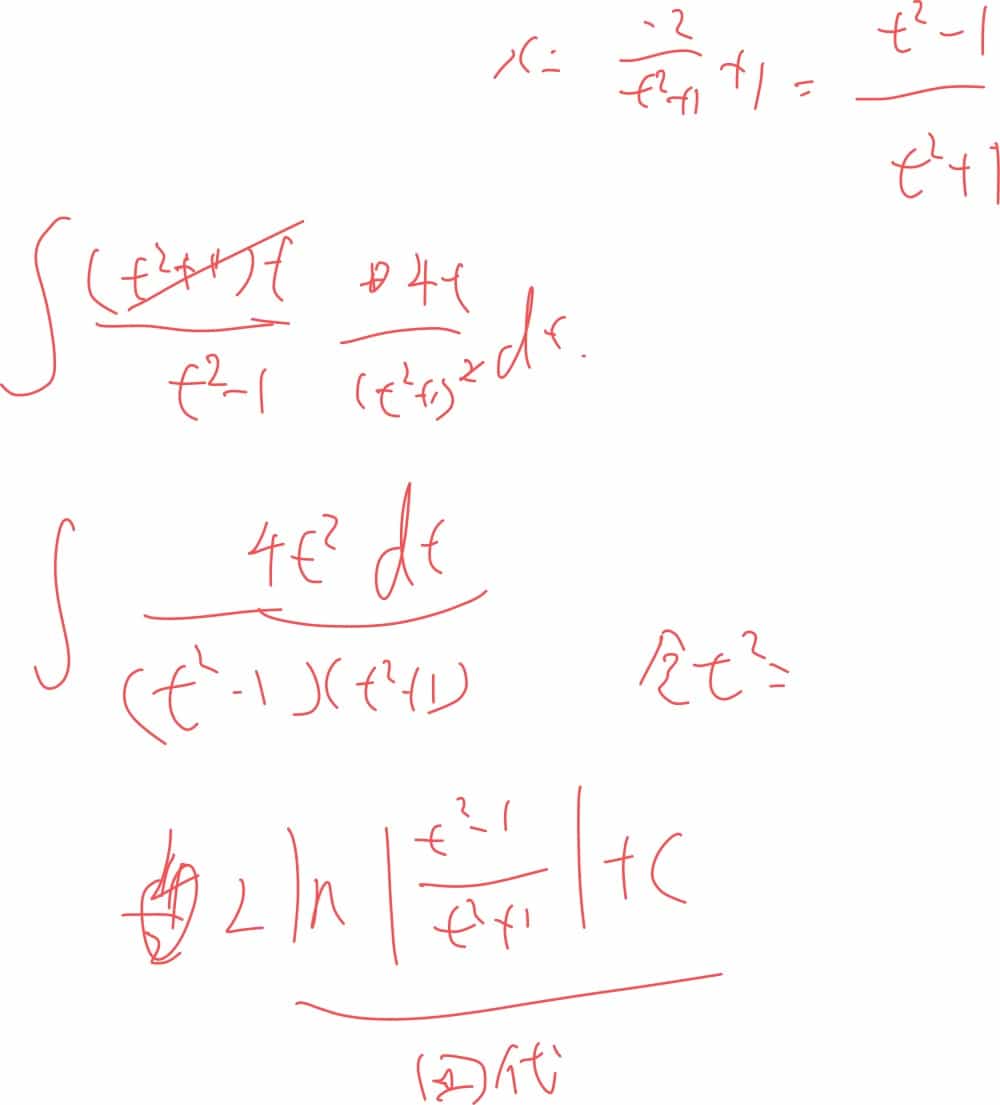 x = \frac{-2}{t^2+1} + 1 = \frac{t^2-1}{t^2+1}
\int \frac{(t^2+1)t}{t^2-1} \frac{4t}{(t^2+1)^2} dt.
\int \frac{4t^2 dt}{(t^2-1)(t^2+1)}
令t^2=
2 ln | \frac{t^2-1}{t^2+1} | + C
回代